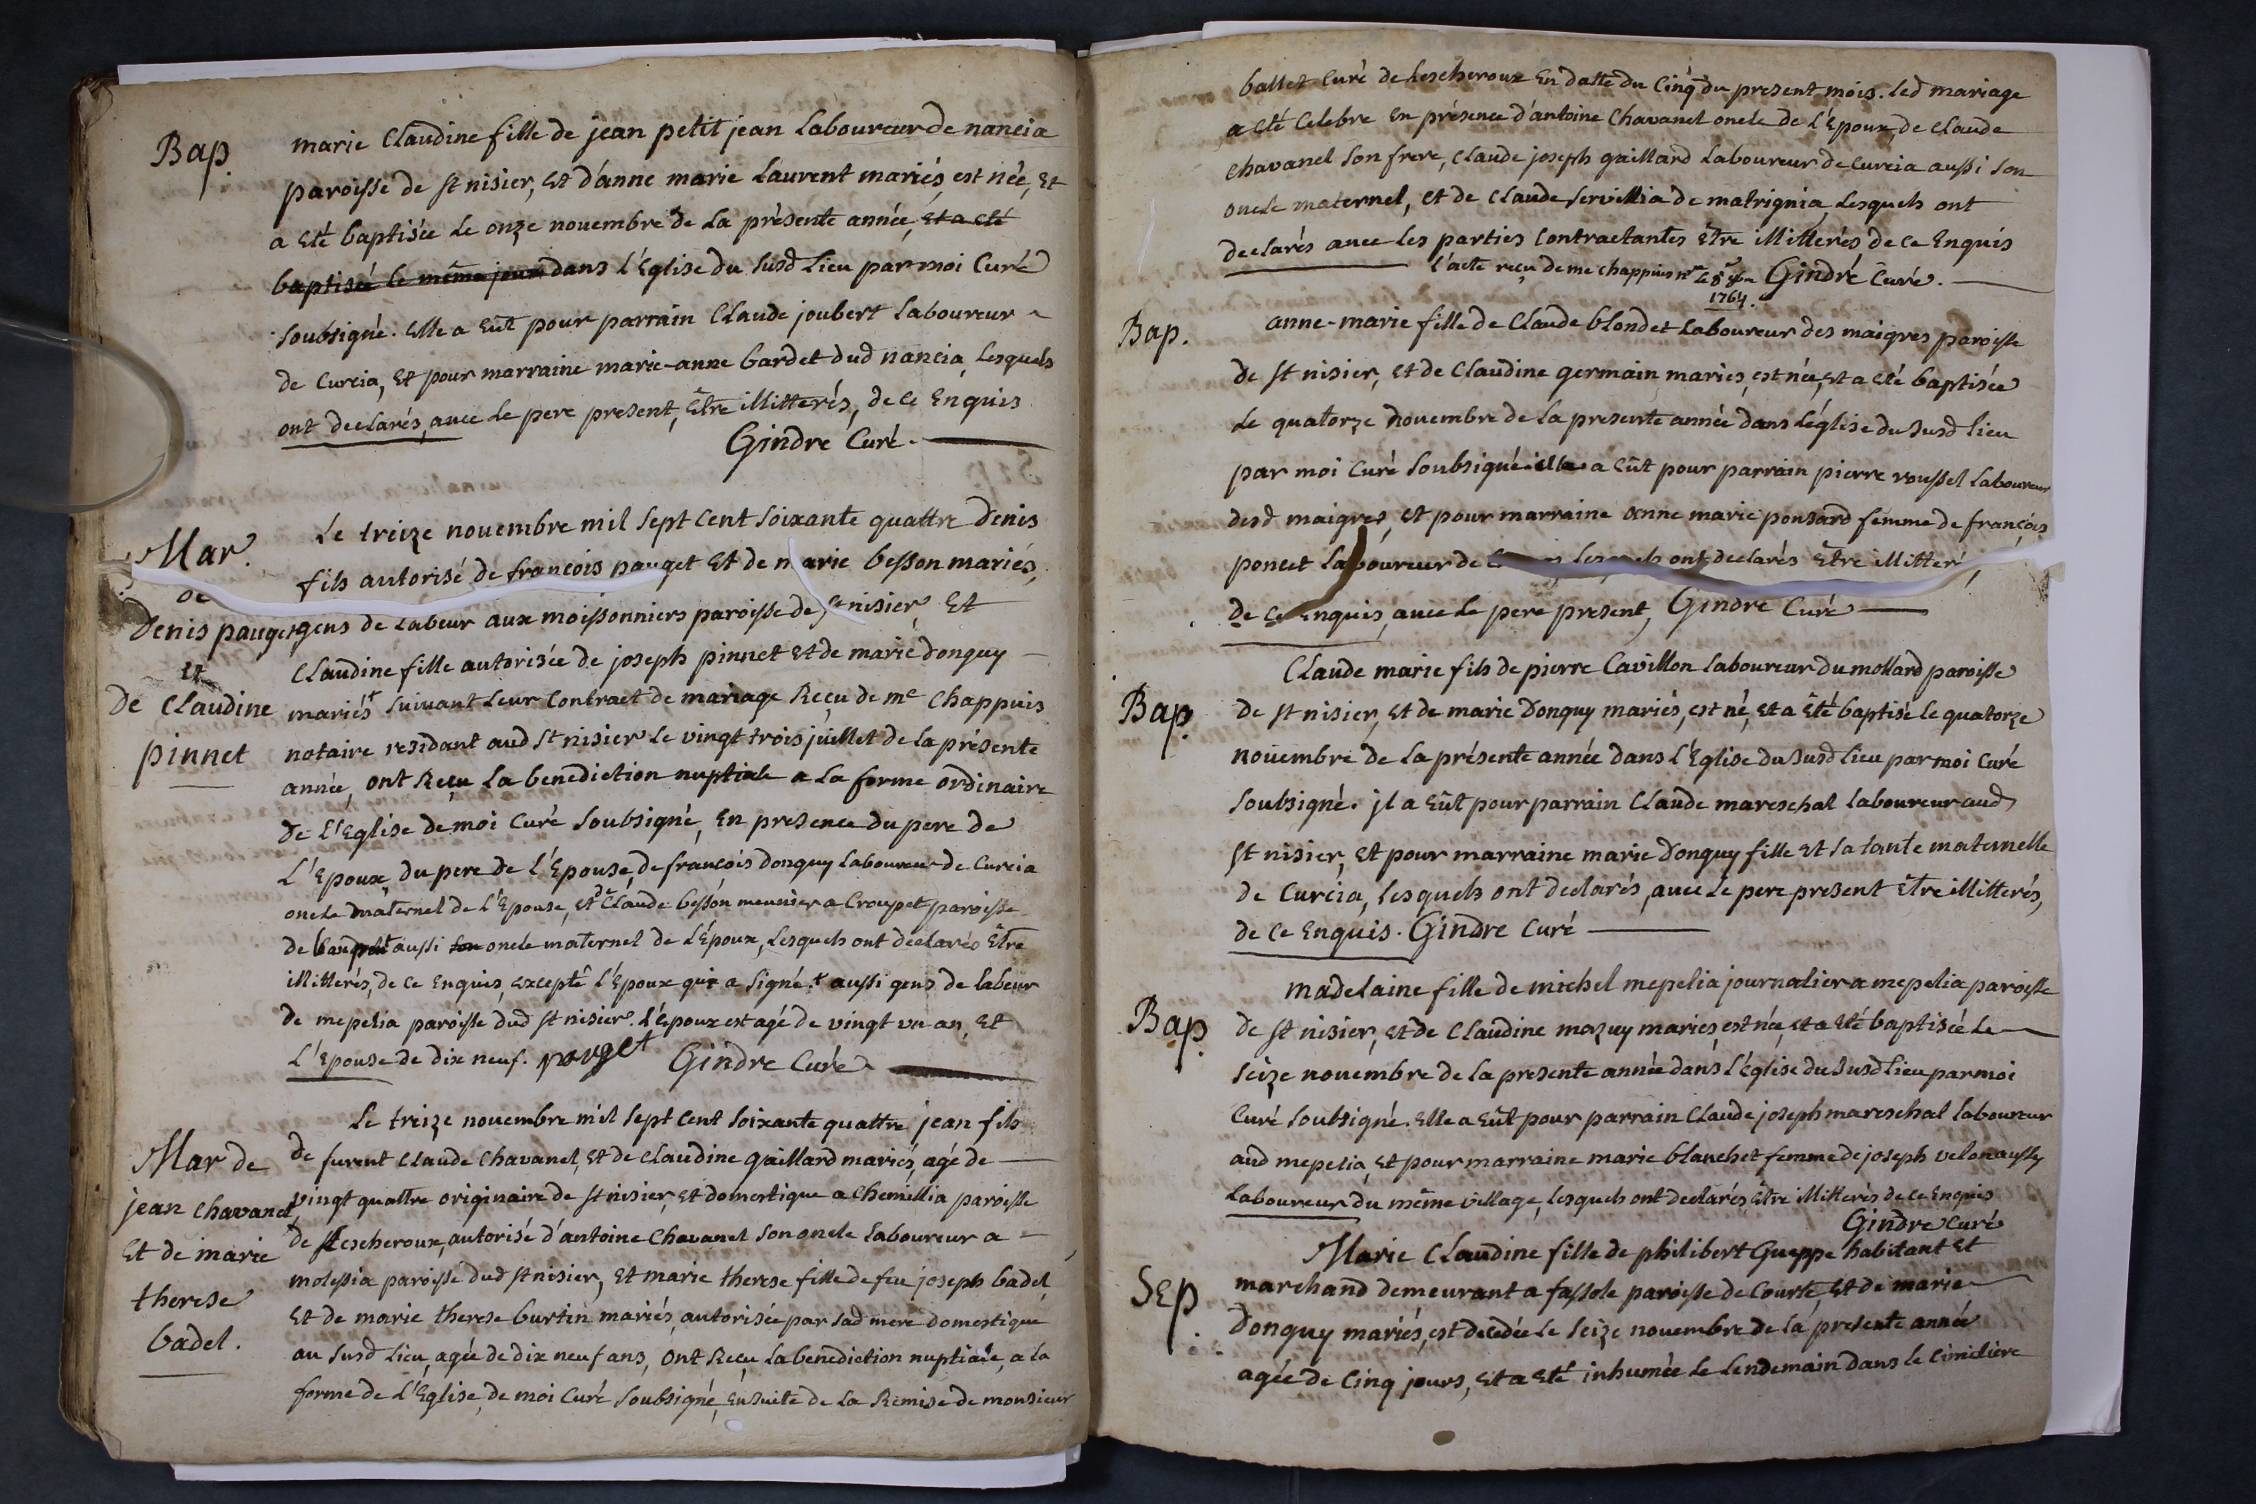 Bap.
marie Claudine fille de jean petit jean Laboureur de nancia
paroisse de st nisier, et d'anne marie Laurent mariés, est née, et
a eté baptisée le onze novembre de la présente année, et a eté
baptisée le même jour dans l'Eglise du susd lieu par moi Curé
soubsigné. elle a eût pour parrain Claude joubert laboureur
de Curcia, et pour marraine marie-anne bardet dud nancia, lesquels
ont declarés, avec le pere present, être illitterés, de ce Enquis
Gindre Curé.
Mar.
de
Denis pauget
et
De Claudine
pinnet
Le treize novembre mil sept cent soixante quattre Denis
fils autorisé de francois pauget et de marie besson mariés,
gens de labeur aux moissonniers paroisse de st nisier, et
Claudine fille autorisée de joseph pinnet et de marie donguy
mariés + suivant leur Contract de mariage Reçu de me Chappuis
notaire residant aud st nisier le vingt trois juillet de la présente
année, ont Reçu la benediction nuptiale a la forme ordinaire
de l'Eglise de moi Curé soubsigné, En presence du pere de
l'Epoux, du pere de l'Epouse, de françois donguy laboureur de Curcia
oncle maternel de l'Epouse, et de Claude besson meunier a Croupet paroisse
de aussi son oncle maternel de l'Époux, lesquels ont declarés être
illitterés, de ce Enquis, excepté l'époux qui a signé. + aussi gens de labeur
de mepelia paroisse dud st nisier. l'époux est agé de vingt un an, et
l'Epouse de dix neuf. pauget Gindre Curé
Mar de
jean Chavanel
Et de marie
therese
badel.
Le treize novembre mil sept cent soixante quattre jean fils
de furent Claude Chavanel, et de Claudine gaillard mariés, agé de
vingt quattre originaire de st nisier, et domestique a Chemillia paroisse
de Lescheroux, autorisé d'antoine Chavanel son oncle laboureur a
molessia paroisse dud st nisier, et marie therese fille de feu joseph badel,
et de marie therese burtin mariés, autorisée par sad mere domestique
au susd lieu, agée de dix neuf ans, ont Reçu la benediction nuptiale, a la
forme de l'Eglise, de moi Curé soubsigné, Ensuite de la Remise de monsieur
ballet Curé de Lescheroux En datte du Cinq du present mois. led mariage
a eté Celebre en présence d'antoine Chavanel oncle de l'Epoux, de Claude
Chavanel son frere, Claude joseph gaillard laboureur de Curcia aussi son
oncle maternel, et de Claude servillia de matrignia, lesquels ont
declarés avec les parties Contractantes être illitterés de ce Enquis
l'acte reçu de me chappuis nre le 8 1764. Gindré Curé.
Bap.
anne-marie fille de Claude blondet laboureur des maigres paroisse
de st nisier, et de Claudine germain mariés, est née, et a eté baptisée
le quatorze novembre de la presente année dans l'église du susd lieu
par moi Curé soubsigné elle a eût pour parrain pierre roussel laboureur
desd maigres, et pour marraine anne marie ponsard femme de françois
poncet laboureur de lesquels ont declarés être illitteré,
de ce Enquis, avec le pere present, Gindre Curé
Bap.
Claude marie fils de pierre Cavillon laboureur du mollard paroisse
de st nisier, et de marie donguy mariés, est né, et a eté baptisé le quatorze
novembre de la présente année dans l'Eglise du susd lieu par moi Curé
soubsigné. jl a eût pour parrain Claude mareschal laboureur aud
st nisier, et pour marraine marie donguy fille et sa tante maternelle
de Curcia, lesquels ont declarés, avec le pere present être illitterés,
de ce Enquis. Gindre Curé
Bap.
madelaine fille de michel mepelia journalier a mepelia paroisse
de st nisier, et de Claudine mazuy mariés, est née, et a eté baptisée le
seize novembre de la presente année dans l'église du susd lieu par moi
Curé soubsigné. elle a eût pour parrain Claude joseph mareschal laboureur
aud mepelia, et pour marraine marie blanchet femme de joseph velon aussy
laboureur du même village, lesquels ont declarés être illitterés de ce Enquis
Gindre Curé
Sep.
Marie Claudine fille de philibert Gueppe habitant et
marchand demeurant a fassole paroisse de Courte, et de marie
donguy mariés, est decedée le seize novembre de la presente année
agée de Cinq jours, et a eté inhumée le lendemain dans le Cimitiere